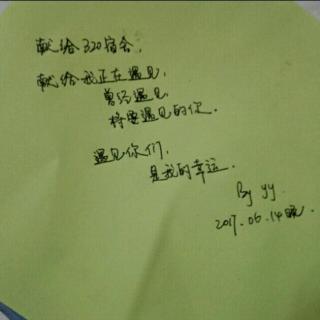 献给320宿舍,
献给我正在遇见,
曾经遇见,
将要遇见的你.
遇见你们,
是我的幸运.
By yy.
2017.06.14晚.